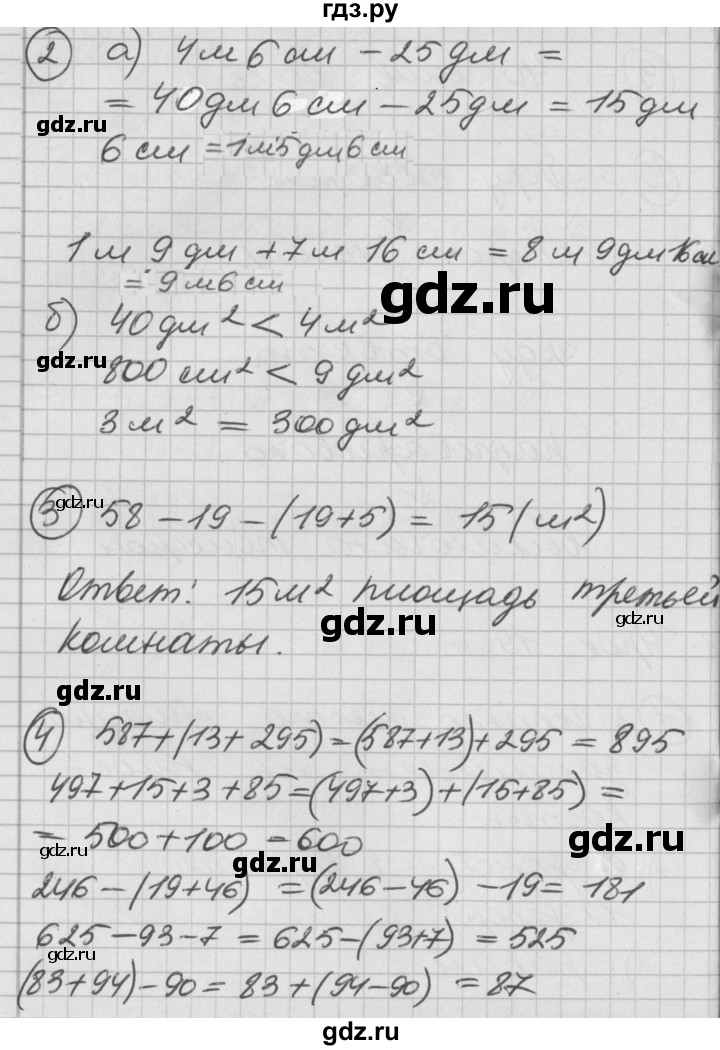 гдз.ру
② а) 4м 6 см - 25 дм =
= 40 дм 6 см - 25 дм = 15 дм
6 см = 1м 5 дм 6 см
1 м 9 дм + 7 м 16 см = 8 м 9 дм 16 см
= 9 м 6 см
б) 40 дм² < 4 м²
800 см² < 9 дм²
3 м² = 300 дм²
③ 58 - 19 - (19 + 5) = 15 (м²)
Ответ: 15 м² площадь третьей
комнаты.
④ 587 + (13 + 295) = (587 + 13) + 295 = 895
497 + 15 + 3 + 85 = (497 + 3) + (15 + 85) =
= 500 + 100 = 600
246 - (19 + 46) = (246 - 46) - 19 = 181
625 - 93 - 7 = 625 - (93 + 7) = 525
(83 + 94) - 90 = 83 + (94 - 90) = 87
gdz.ru
gdz.ru
gdz.ru
gdz.ru
gdz.ru
gdz.ru
gdz.ru
gdz.ru
gdz.ru
gdz.ru
gdz.ru
gdz.ru
gdz.ru
gdz.ru